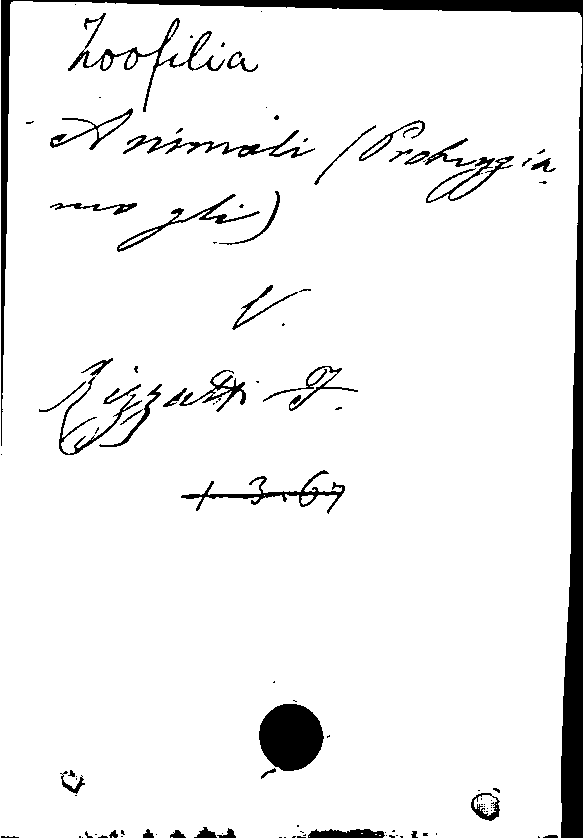 Zoofilia
Animali (Proteggia
mo gli)
V.
Rizzatti F.
1.3.67